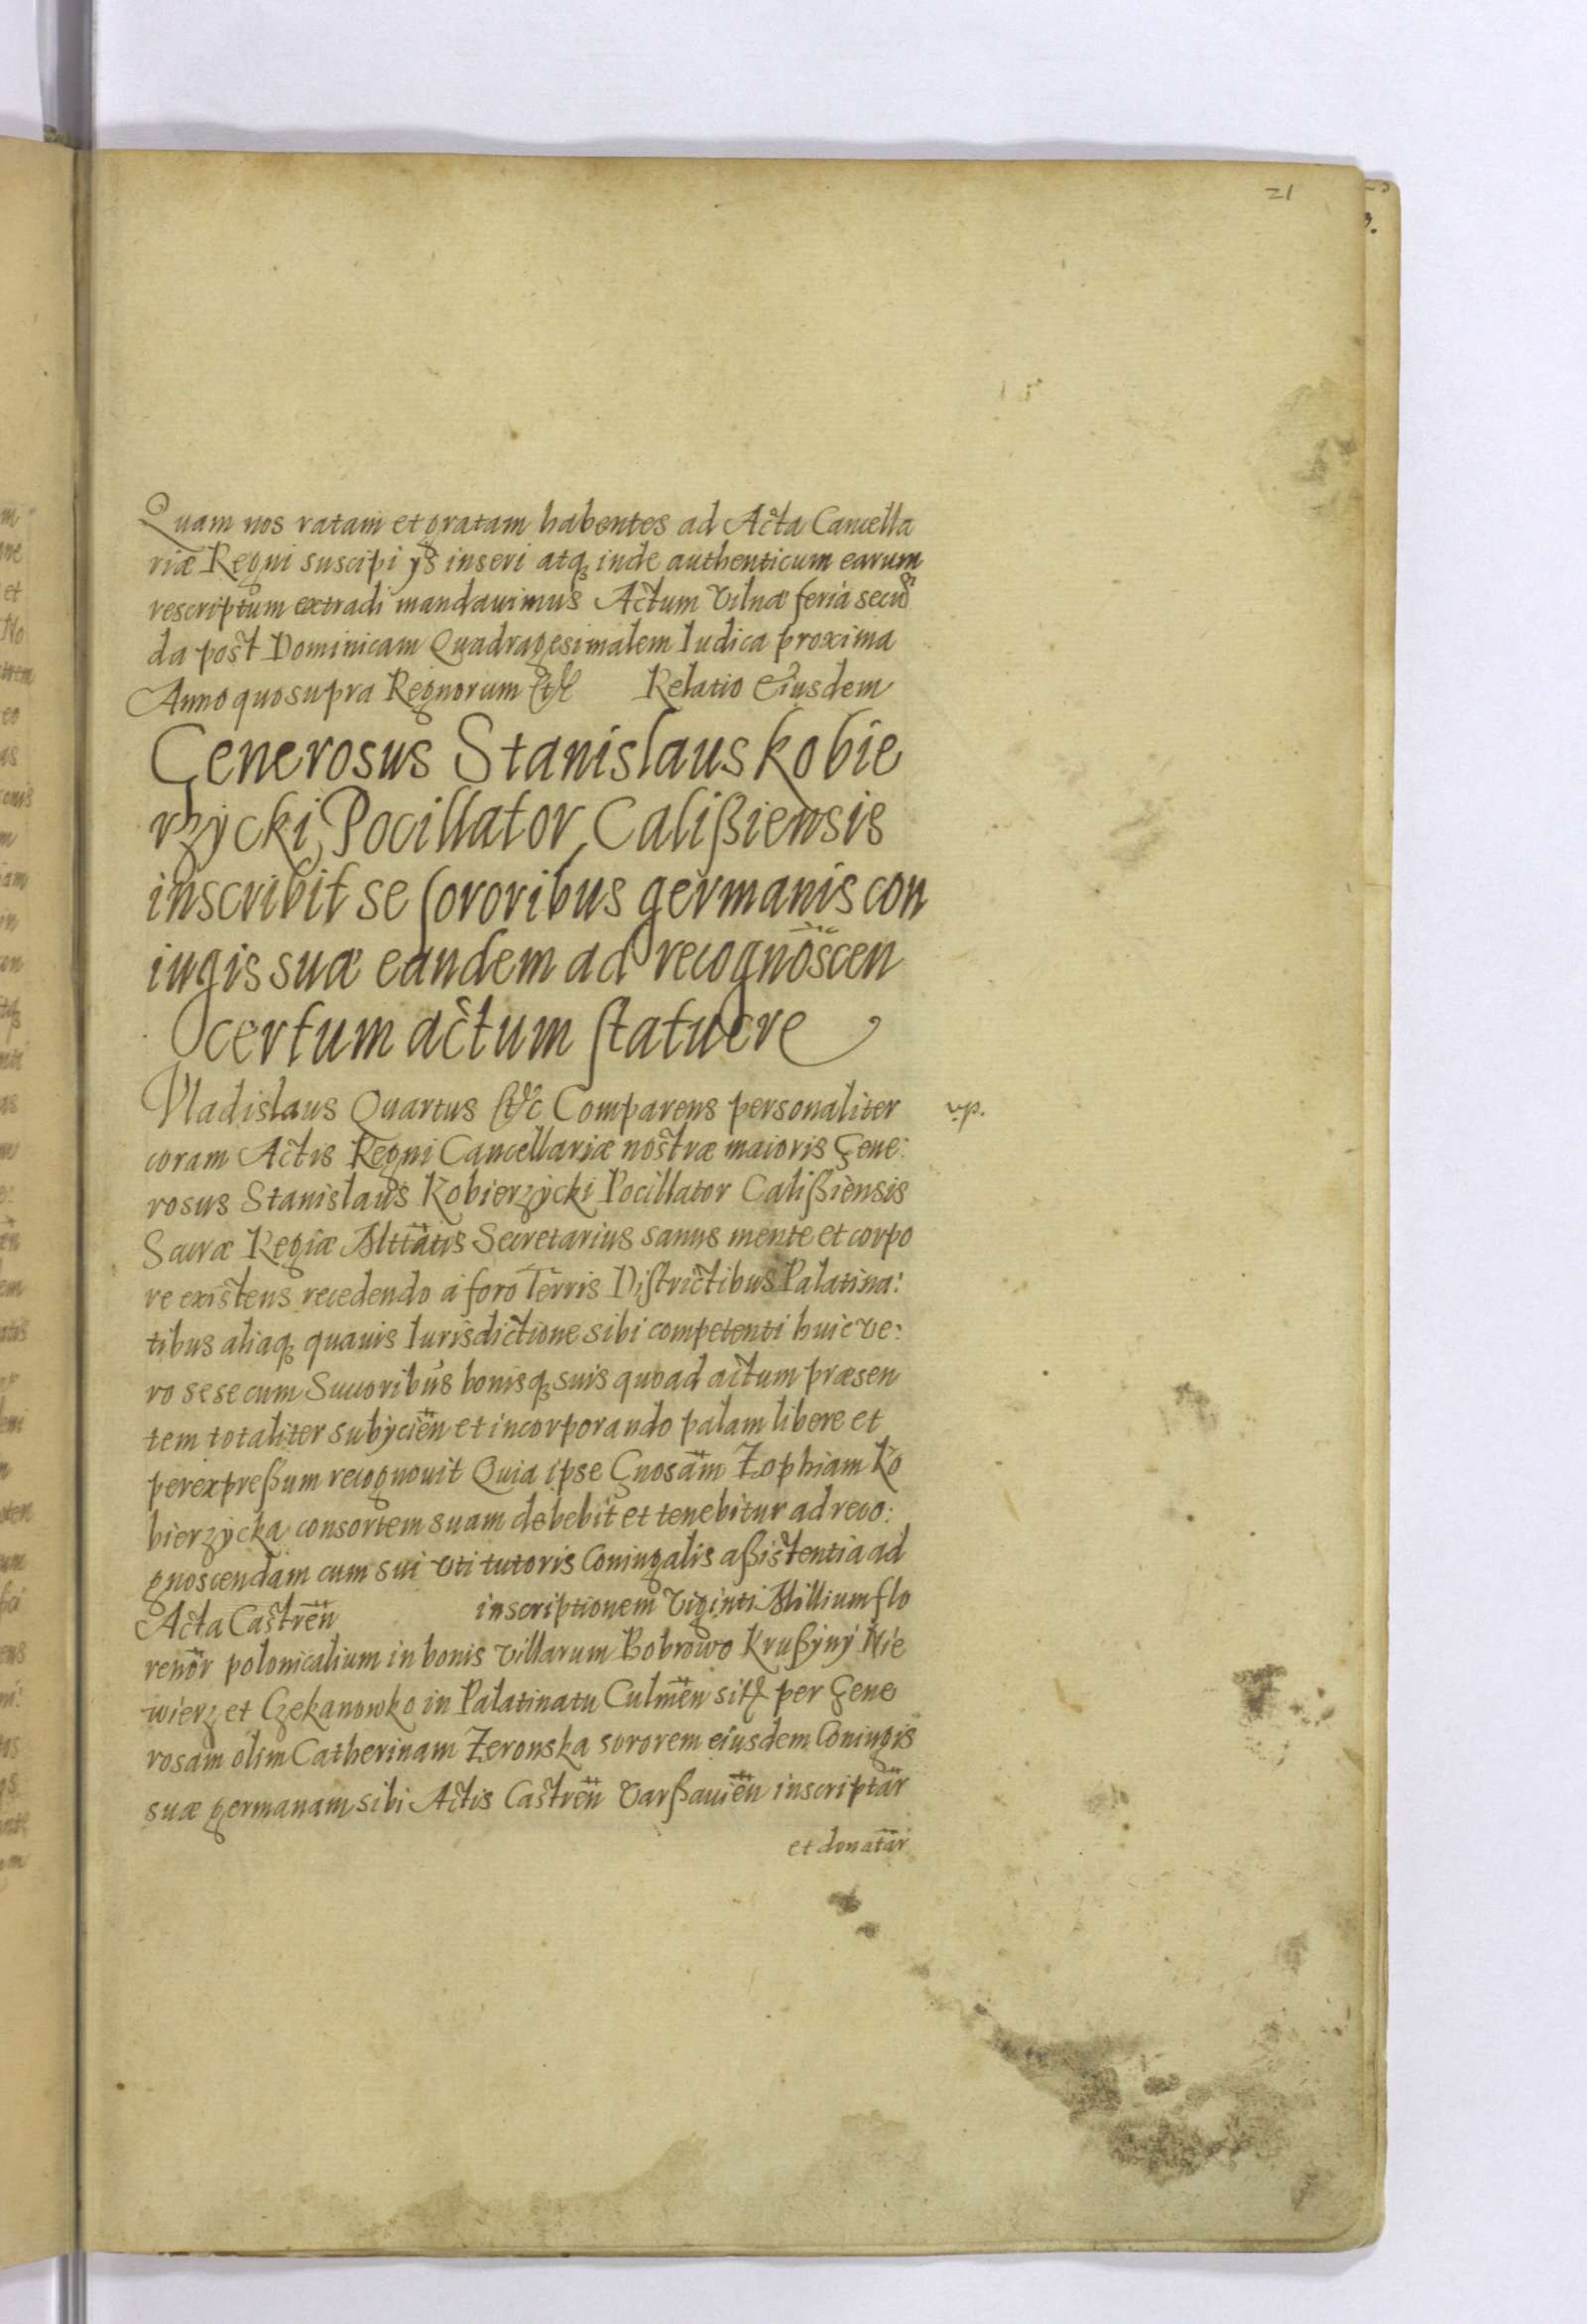 21
Quam nos ratam et gratam habentes ad Acta Cancella
riæ Regni suscipi ijs inseri atq inde authenticum earum
rescriptum extradi mandauimus Actum Vilnæ feria secun
da post Dominicam Quadragesimalem Iudica proxima
Anno quo supra Regnorum etc Relatio Eiusdem
Generosus Stanislaus Kobie
rzycki Pocillator Calißiensis
inscribit se sororibus germanis con
iugis suæ eandem ad recognoscen
certum actum statuere
Vladislaus Quartus etc Comparens personaliter
v.p.
coram Actis Regni Cancellariæ nostræ maioris Gene:
rosus Stanislaus Kobierzycki Pocillator Calißiensis
Sacræ Regiæ Mttatis Secretarius sanus mente et corpo
re existens recedendo a foro Terris Districtibus Palatina:
tibus aliaq quauis Iurisdictione sibi competenti huic ve:
ro sese cum Succoribus bonisq suis quoad actum præsen
tem totaliter subijcien et incorporando palam libere et
per expreßum recognouit Quia ipse Gnosam Zophiam Ko
bierzycka consortem suam debebit et tenebitur ad reco:
gnoscendam cum sui vti tutoris Coniugalis aßistentia ad
Acta Castren inscriptionem Viginti Millium flo
renor polonicalium in bonis villarum Bobrowo Krußyny Nie
wierz et Czekanowko in Palatinatu Culmen sit per Gene
rosam olim Catherinam Zeronska sororem eiusdem Coniugis
suæ germanam sibi Actis Castren Varßauien inscriptar
et donatar